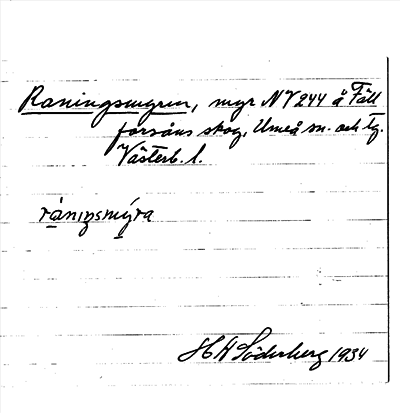 Raningsmyren, myr NV 244 å Fäll
forsåns skog, Umeå sn. och tg.
Västerb. l.
ràniŋsmýra
H H Söderberg 1934